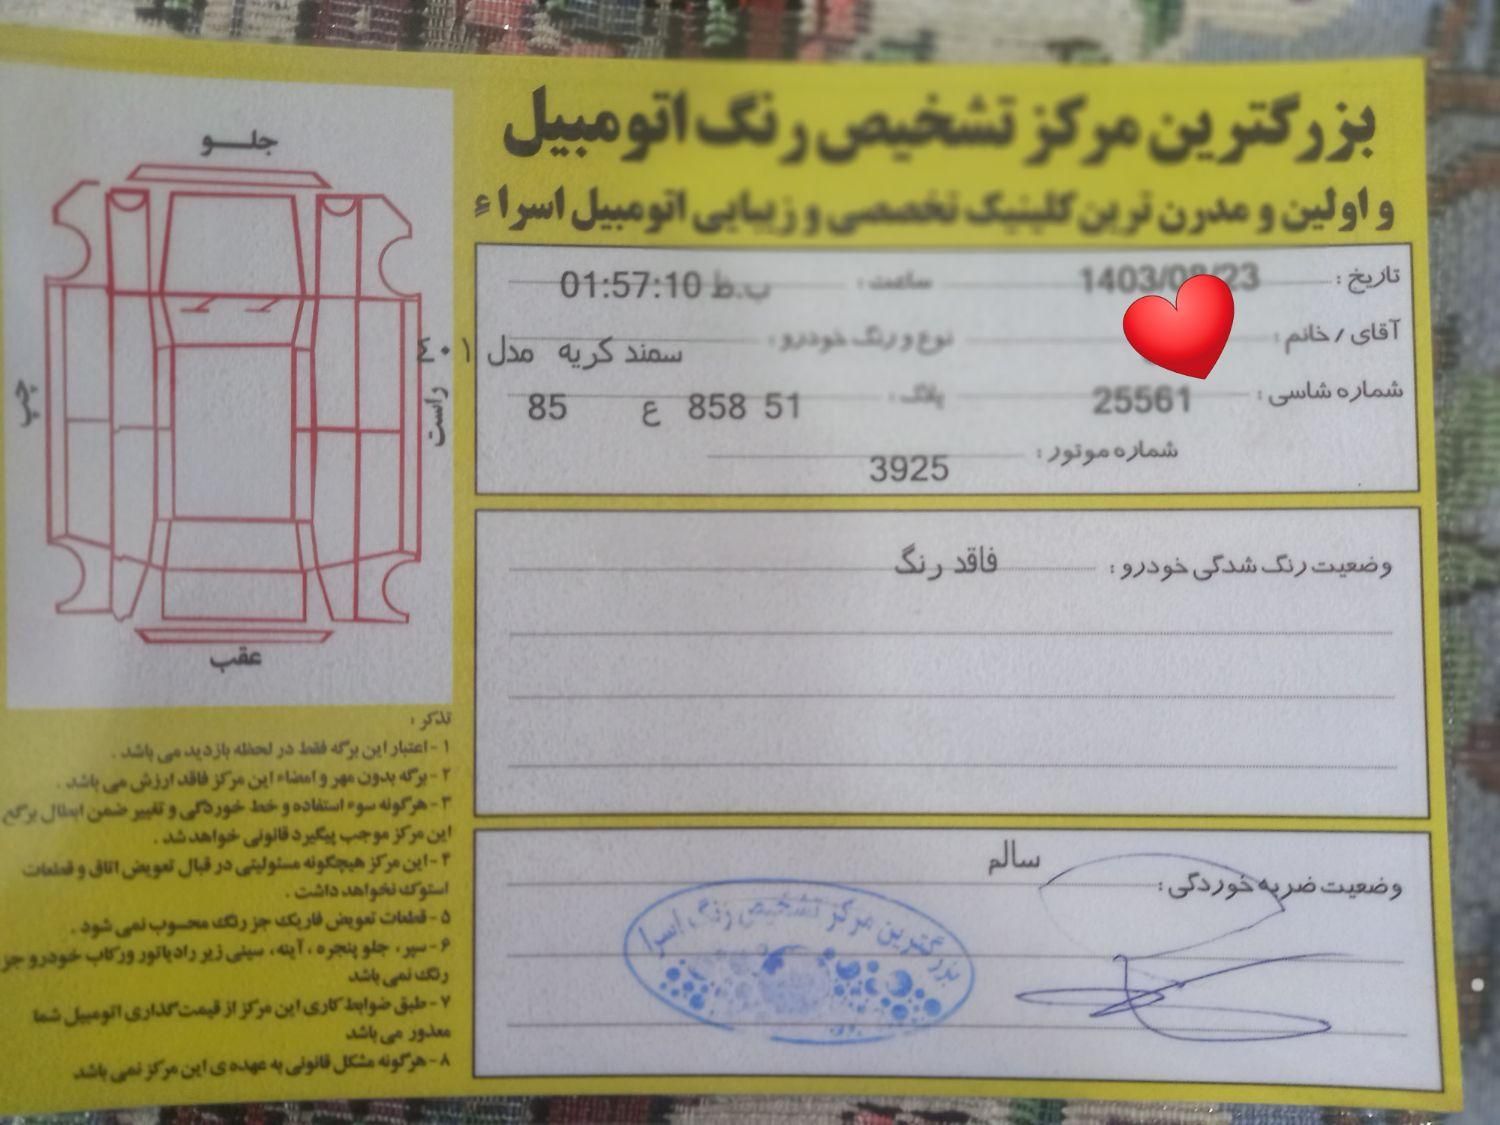 بزرگترین مرکز تشخیص رنگ اتومبیل
و اولین و مدرن ترین کلینیک تخصصی و زیبایی اتومبیل اسراء
تاریخ : 1403/08/23 ساعت : 01:57:10 ب.ظ
آقای / خانم : نوع و رنگ خودرو : سمند کربه مدل
شماره شاسی : 25561 پلاک : 51 858 ع 85
شماره موتور : 3925
وضعیت رنگ شدگی خودرو : فاقد رنگ
وضعیت ضربه خوردگی : سالم
بزرگترین مرکز تشخیص رنگ اسرا
جلو
چپ
راست
عقب
تذکر :
۱- اعتبار این برگه فقط در لحظه بازدید می باشد .
۲- برگه بدون مهر و امضاء این مرکز فاقد ارزش می باشد .
۳- هرگونه سوء استفاده و خط خوردگی و تغییر ضمن ابطال برگه
این مرکز موجب پیگیرد قانونی خواهد شد .
۴- این مرکز هیچگونه مسئولیتی در قبال تعویض اتاق و قطعات
استوک نخواهد داشت .
۵- قطعات تعویض فابریک جز رنگ محسوب نمی شود .
۶- سپر، جلو پنجره ، آینه، سینی زیر رادیاتور ورکاب خودرو جز
رنگ نمی باشد
۷- طبق ضوابط کاری این مرکز از قیمت گذاری اتومبیل شما
معذور می باشد
۸- هرگونه مشکل قانونی به عهده ی این مرکز نمی باشد